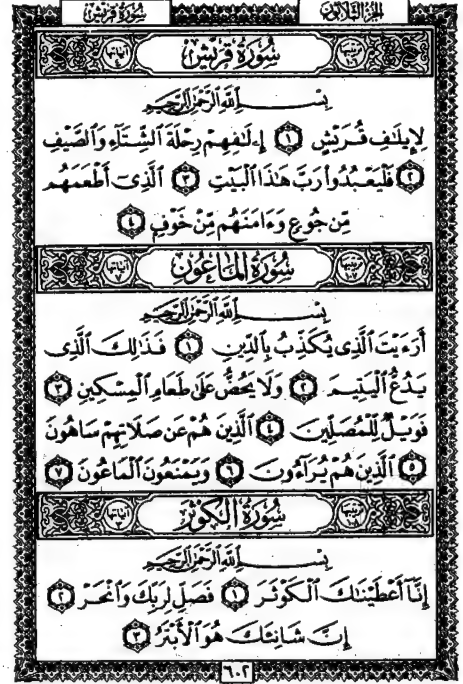 الجزء الثلاثون سورة قريش
سُورَةُ قُرَيْشٍ
بِسْمِ ٱللَّهِ ٱلرَّحْمَٰنِ ٱلرَّحِيمِ
لِإِيلَٰفِ قُرَيْشٍ ١ إِۦلَٰفِهِمْ رِحْلَةَ ٱلشِّتَآءِ وَٱلصَّيْفِ
٢ فَلْيَعْبُدُوا۟ رَبَّ هَٰذَا ٱلْبَيْتِ ٣ ٱلَّذِىٓ أَطْعَمَهُم
مِّن جُوعٍ وَءَامَنَهُم مِّنْ خَوْفٍ ٤
سُورَةُ المَاعُونِ
بِسْمِ ٱللَّهِ ٱلرَّحْمَٰنِ ٱلرَّحِيمِ
أَرَءَيْتَ ٱلَّذِى يُكَذِّبُ بِٱلدِّينِ ١ فَذَٰلِكَ ٱلَّذِى
يَدُعُّ ٱلْيَتِيمَ ٢ وَلَا يَحُضُّ عَلَىٰ طَعَامِ ٱلْمِسْكِينِ ٣
فَوَيْلٌ لِّلْمُصَلِّينَ ٤ ٱلَّذِينَ هُمْ عَن صَلَاتِهِمْ سَاهُونَ
٥ ٱلَّذِينَ هُمْ يُرَآءُونَ ٦ وَيَمْنَعُونَ ٱلْمَاعُونَ ٧
سُورَةُ الكَوْثَرِ
بِسْمِ ٱللَّهِ ٱلرَّحْمَٰنِ ٱلرَّحِيمِ
إِنَّآ أَعْطَيْنَٰكَ ٱلْكَوْثَرَ ١ فَصَلِّ لِرَبِّكَ وَٱنْحَرْ ٢
إِنَّ شَانِئَكَ هُوَ ٱلْأَبْتَرُ ٣
٦٠٢